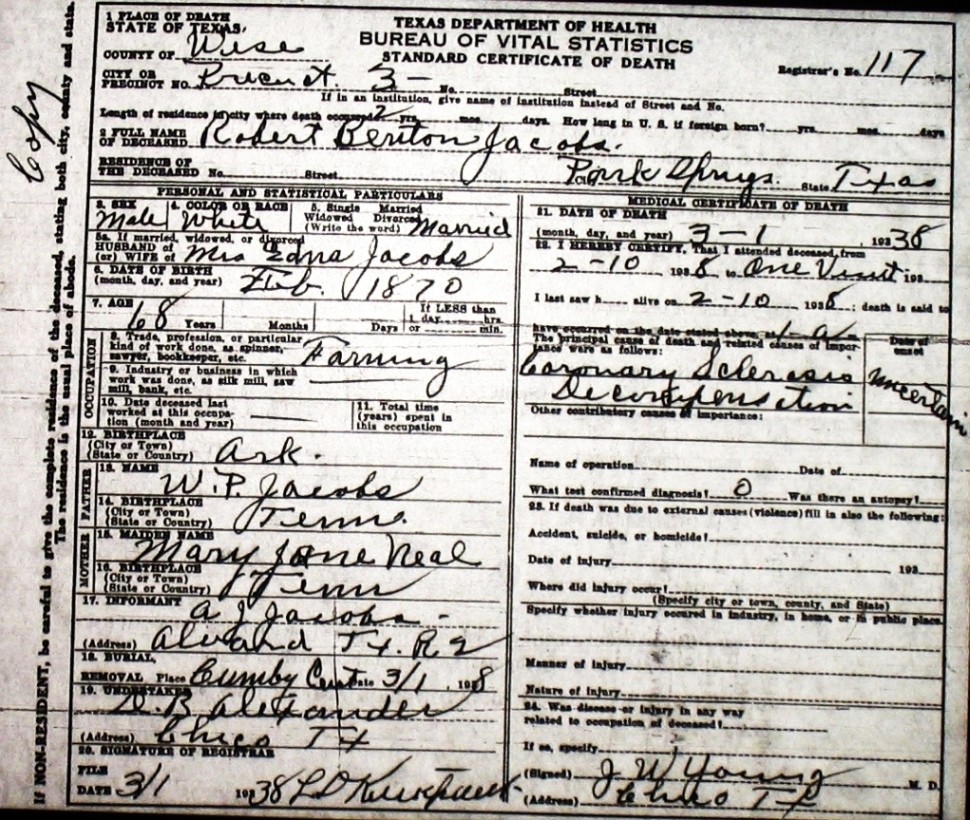 Copy
If NON-RESIDENT, be careful to give the complete residence of the deceased, stating both city, county and state.
The residence is the usual place of abode.
TEXAS DEPARTMENT OF HEALTH
BUREAU OF VITAL STATISTICS
STANDARD CERTIFICATE OF DEATH
Registrar's No. 117
1 PLACE OF DEATH
STATE OF TEXAS,
COUNTY OF Wise
CITY OR
PRECINCT No. Precinct 3- No. Street
If in an institution, give name of institution instead of Street and No.
Length of residence in city where death occurred 2 yrs. mos. days. How long in U. S. if foreign born? yrs. mos. days
2 FULL NAME
OF DECEASED Robert Benton Jacobs.
RESIDENCE OF
THE DECEASED No. Street Park Springs. State Texas
PERSONAL AND STATISTICAL PARTICULARS
3. SEX Male 4. COLOR OR RACE White 5. Single Married
Widowed Divorced
(Write the word) Married
5a. If married, widowed, or divorced
HUSBAND of
(or) WIFE of Mrs Edna Jacobs
6. DATE OF BIRTH
(month, day, and year) Feb. 1870
7. AGE 68 Years Months Days If LESS than
1 day, hrs.
or min.
OCCUPATION
8. Trade, profession, or particular
kind of work done, as spinner,
sawyer, bookkeeper, etc. Farming
9. Industry or business in which
work was done, as silk mill, saw
mill, bank, etc.
10. Date deceased last
worked at this occupa-
tion (month and year)
11. Total time
(years) spent in
this occupation
12. BIRTHPLACE
(City or Town)
(State or Country) Ark.
FATHER
13. NAME
W. P. Jacobs
14. BIRTHPLACE
(City or Town)
(State or Country) Tenn.
MOTHER
15. MAIDEN NAME
Mary Jane Neal
16. BIRTHPLACE
(City or Town)
(State or Country) Tenn
17. INFORMANT
A J Jacobs
(Address) Alvord Tx. R 2
18. BURIAL,
REMOVAL Place Cumby Date 3/1 1938
19. UNDERTAKER
Alexander
(Address) Chico Tx
20. SIGNATURE OF REGISTRAR
FILE
DATE 3/1 1938 L D
MEDICAL CERTIFICATE OF DEATH
21. DATE OF DEATH
(month, day, and year) 3-1 1938
22. I HEREBY CERTIFY, That I attended deceased from
2-10 1938 to One Visit 193
I last saw h alive on 2-10 1938; death is said to
have occurred on the date stated above, at
The principal cause of death and related causes of impor-
tance were as follows:
Date of
onset
Coronary Sclerosis
Decompensation
Uncertain
Other contributory causes of importance:
Name of operation Date of
What test confirmed diagnosis? 0 Was there an autopsy?
23. If death was due to external causes (violence) fill in also the following:
Accident, suicide, or homicide?
Date of injury 193
Where did injury occur?
(Specify city or town, county, and State)
Specify whether injury occured in industry, in home, or in public place.
Manner of injury
Nature of injury
24. Was disease or injury in any way
related to occupation of deceased?
If so, specify
(Signed) J W Young M. D.
(Address) Chico Tx